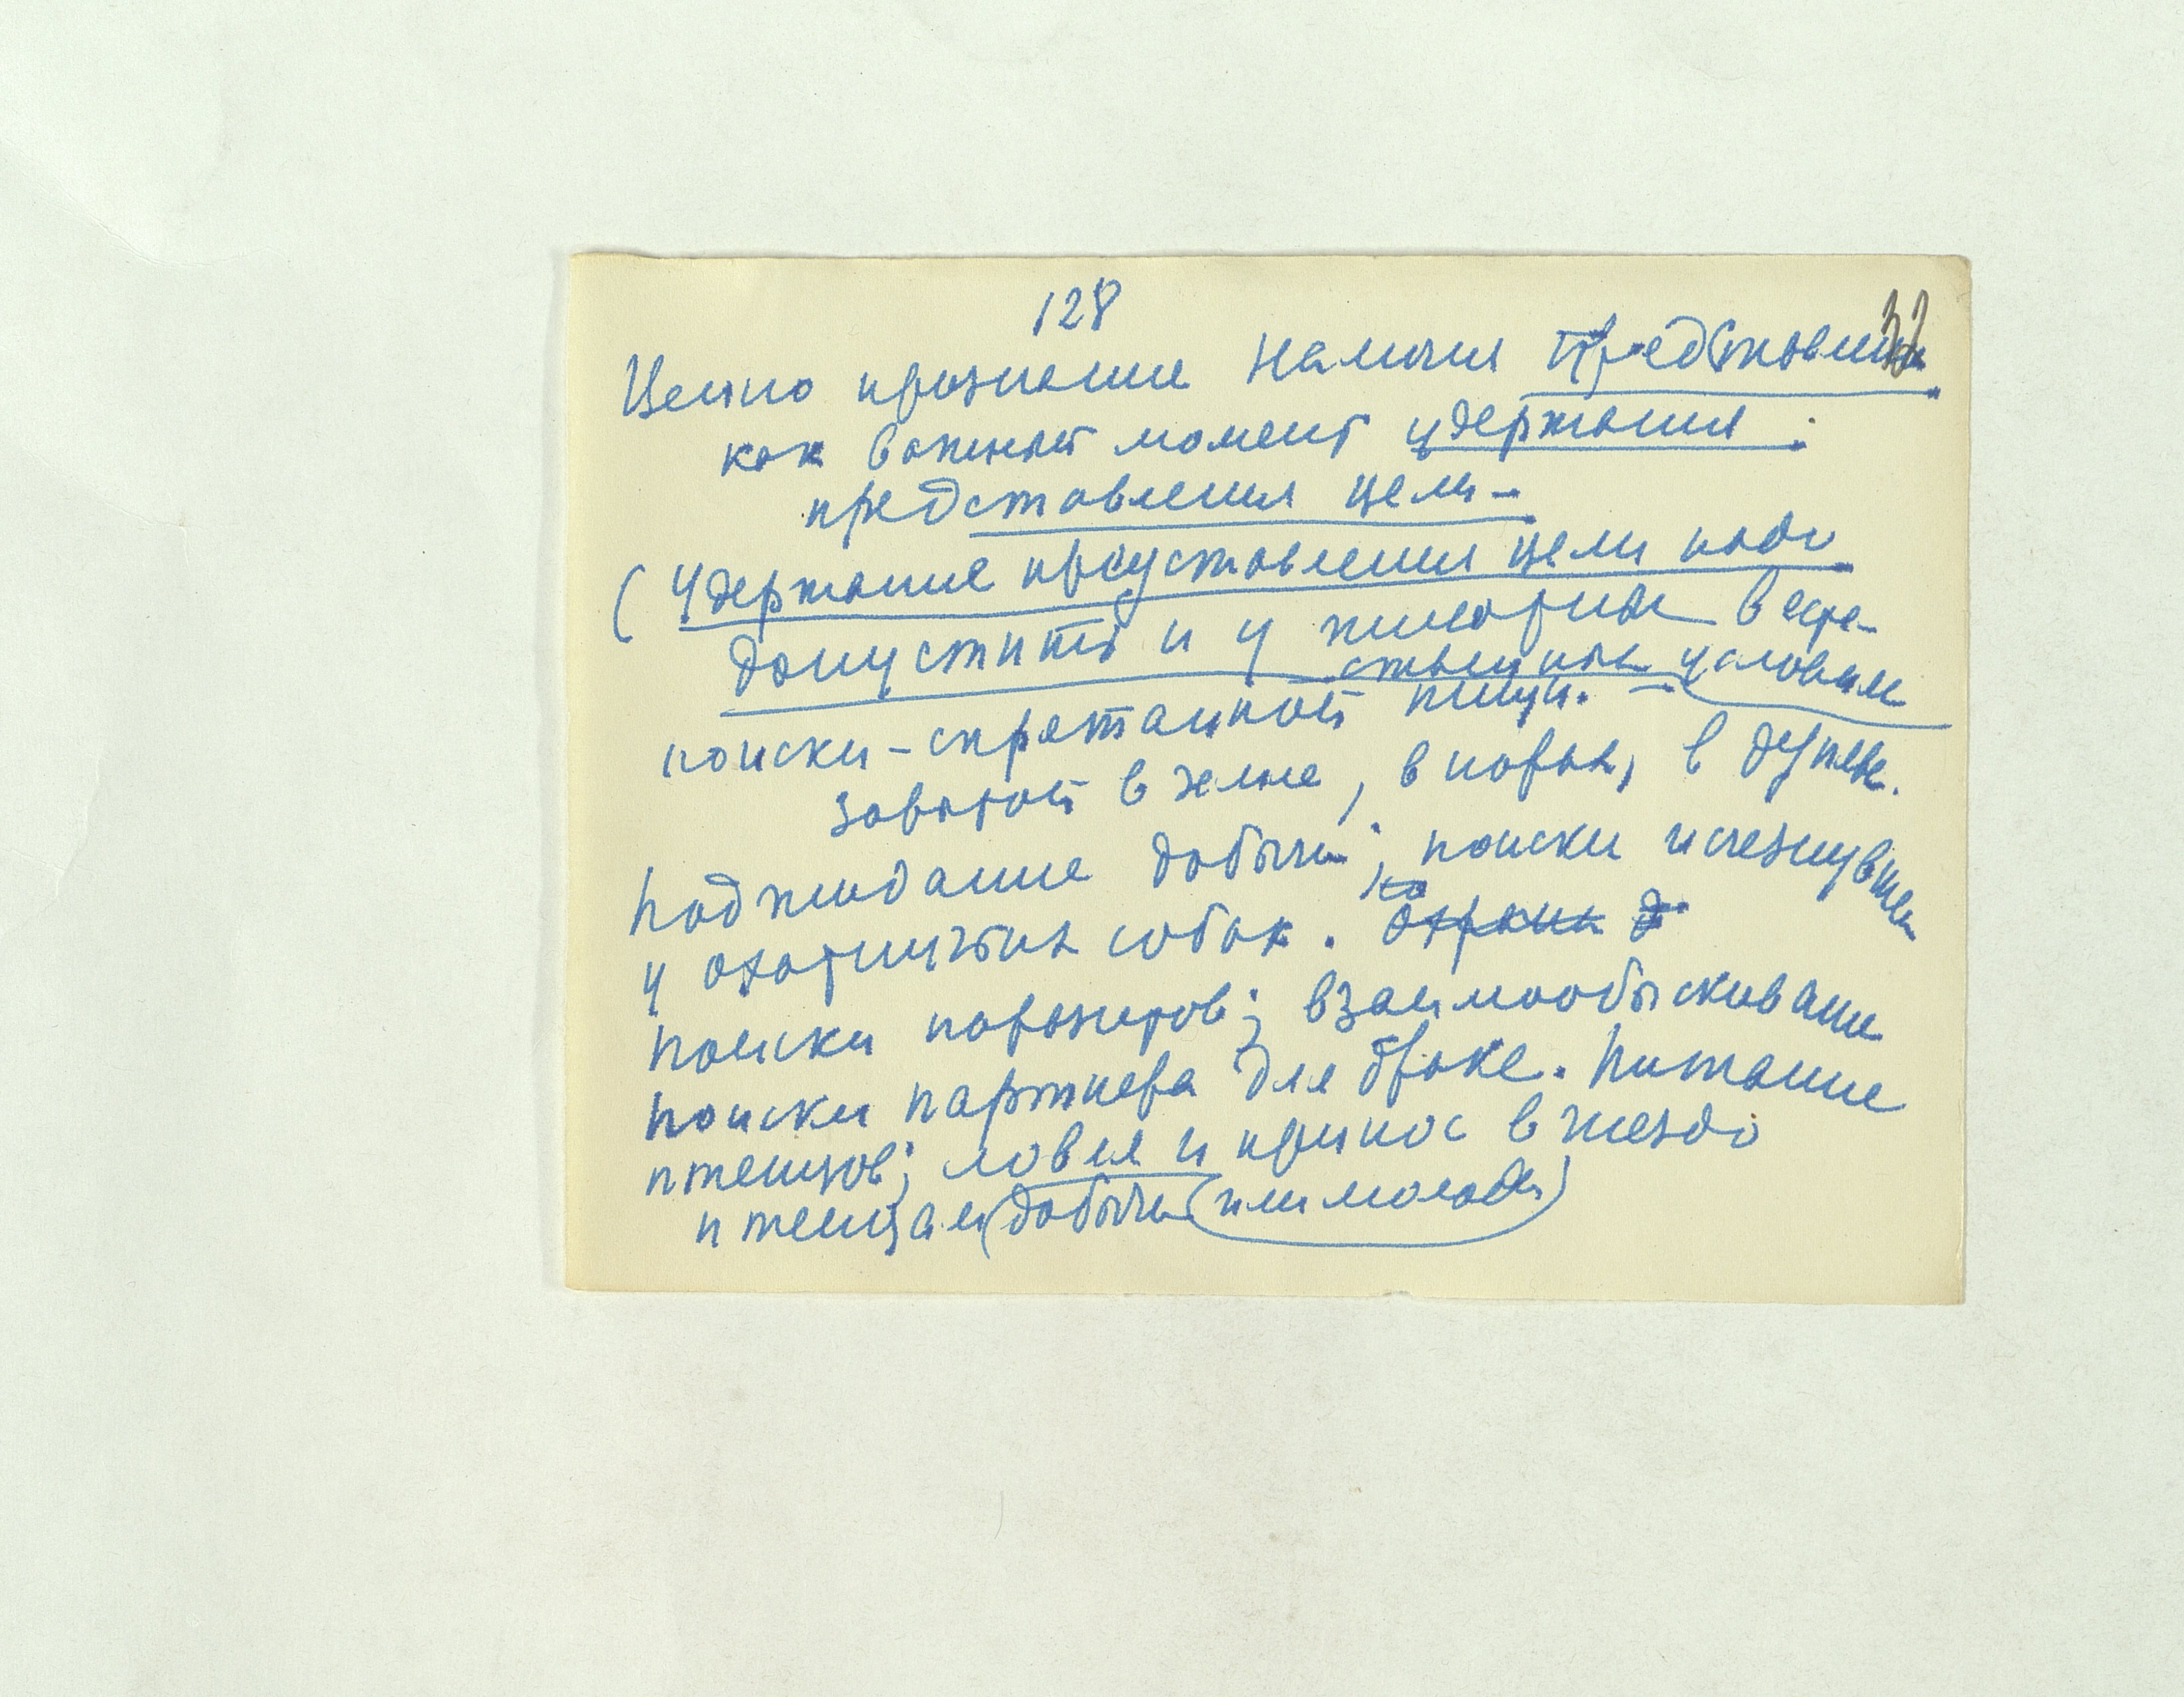 128
Ценно признание наличия представления
как важный момент удержания:
представления цели –
( Удержание представления цели надо
допустить и у животных в есте-
ственных условиях
поиски – спрятанной пищи. –
зарытой в земле, в норах, в дупле.
Поджидание добычи; поиски исчезнувшей
у охотничьих собак.
Поиски паразитов; взаимообыскивание
Поиски партнера для брака. Питание
птенцов; ловля и принос в гнездо
птенцам (добычи (или молоди)